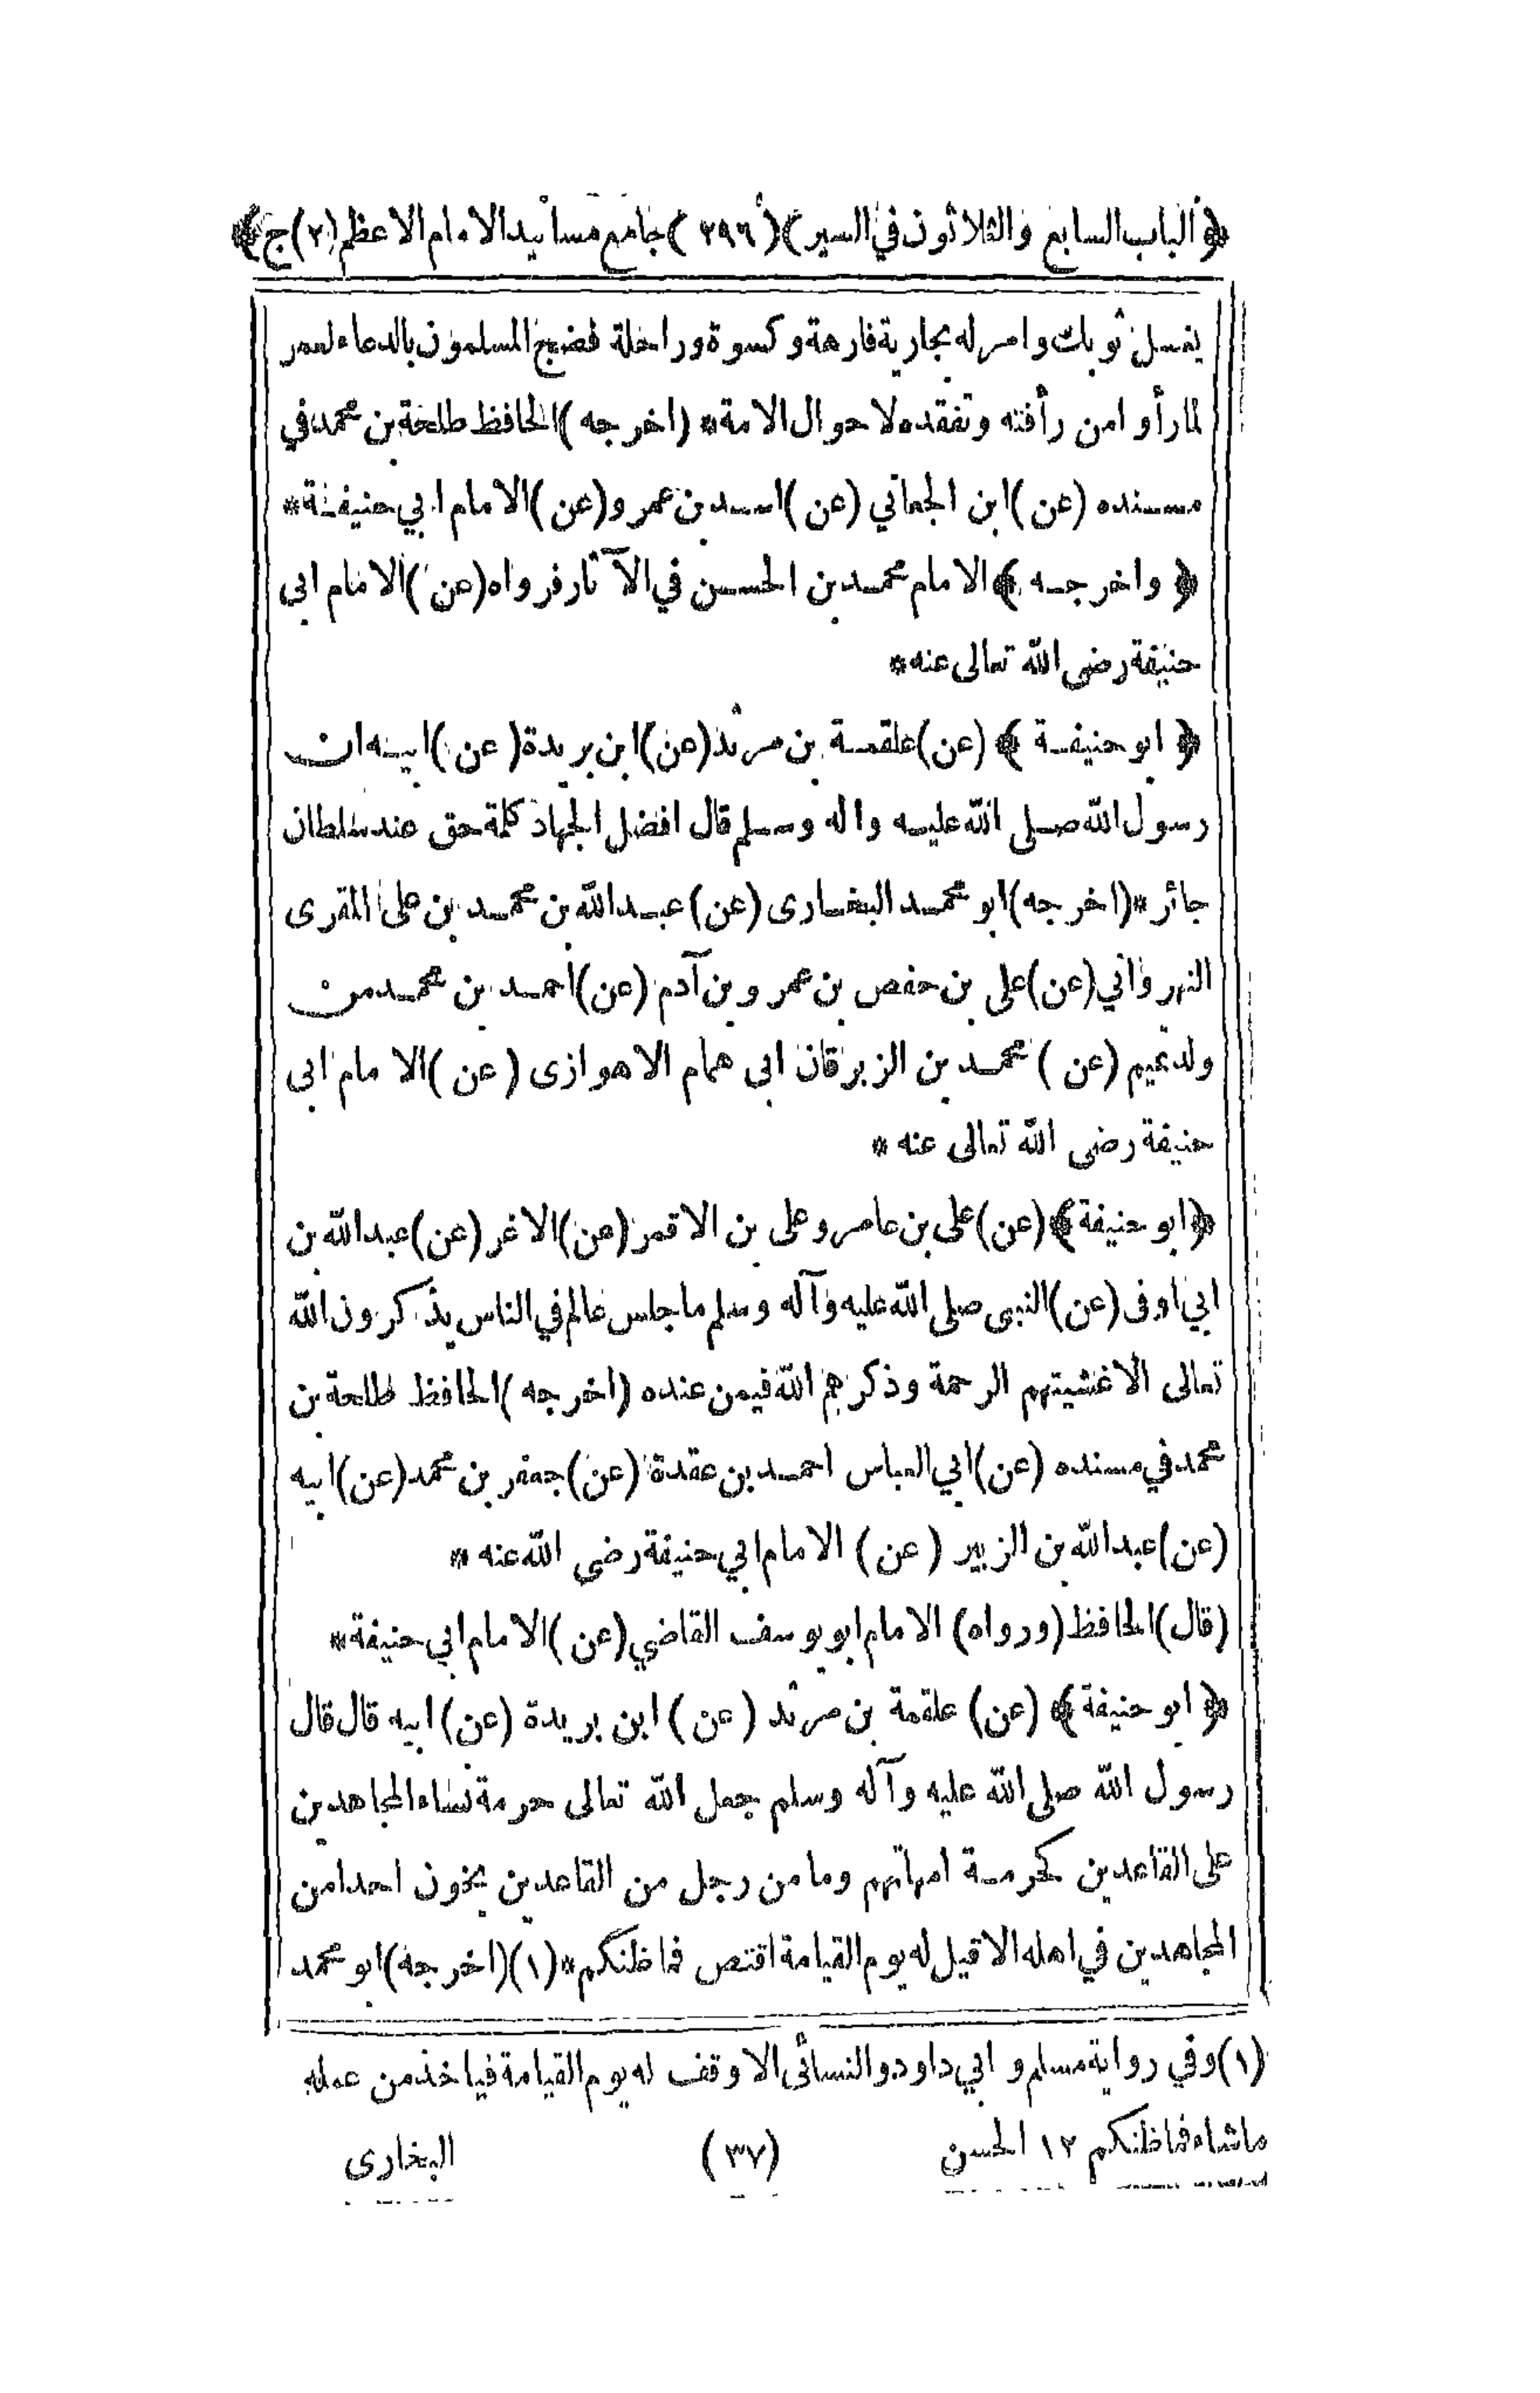 ﴿الباب السابع والثلاثون في السير﴾ (٢٩٦) ﴿جامع مسانيد الامام الاعظم (٢) ج﴾
يغسل ثوبك وامر له بجارية فارهة وكسوة وراحلة فضج المسلمون بالدعاء لعمر
لما رأوا من رأفته وتفقده لاحوال الامة * (اخرجه) الحافظ طلحة بن محمد في
مسنده (عن) ابن الجعاني (عن) اسد بن عمرو (عن) الامام ابي حنيفة *
﴿واخرجه﴾ الامام محمد بن الحسن في الآثار فرواه (عن) الامام ابى
حنيفة رضى الله تعالى عنه *
﴿ابو حنيفة﴾ (عن) علقمة بن مرثد (عن) ابن بريدة (عن) ابيه ان
رسول الله صلى الله عليه واله وسلم قال افضل الجهاد كلمة حق عند سلطان
جائر * (اخرجه) ابو محمد البخارى (عن) عبد الله بن محمد بن على المقرى
النهرواني (عن) على بن حفص بن عمر وبن آدم (عن) احمد بن محمد من
ولد تميم (عن) محمد بن الزبرقان ابى همام الاهوازى (عن) الامام ابى
حنيفة رضى الله تعالى عنه *
﴿ابو حنيفة﴾ (عن) على بن عامر وعلى بن الاقمر (عن) الاغر (عن) عبد الله بن
ابي اوفى (عن) النبى صلى الله عليه وآله وسلم ما جلس عالم في الناس يذكرون الله
تعالى الا غشيتهم الرحمة وذكرهم الله فيمن عنده (اخرجه) الحافظ طلحة بن
محمد في مسنده (عن) ابي العباس احمد بن عقدة (عن) جعفر بن محمد (عن) ابيه
(عن) عبد الله بن الزبير (عن) الامام ابي حنيفة رضى الله عنه *
(قال) الحافظ (ورواه) الامام ابو يوسف القاضي (عن) الامام ابي حنيفة *
﴿ابو حنيفة﴾ (عن) علقمة بن مرثد (عن) ابن بريدة (عن) ابيه قال قال
رسول الله صلى الله عليه وآله وسلم جعل الله تعالى حرمة نساء المجاهدين
على القاعدين كحرمة امهاتهم وما من رجل من القاعدين يخون احدا من
المجاهدين في اهله الا قيل له يوم القيامة اقتص فما ظنكم * (١) (اخرجه) ابو محمد
(١) وفي رواية مسلم و ابي داود والنسائى الا وقف له يوم القيامة فياخذ من عمله
ما شاء فما ظنكم ١٢ الحسن (٣٧) البخارى